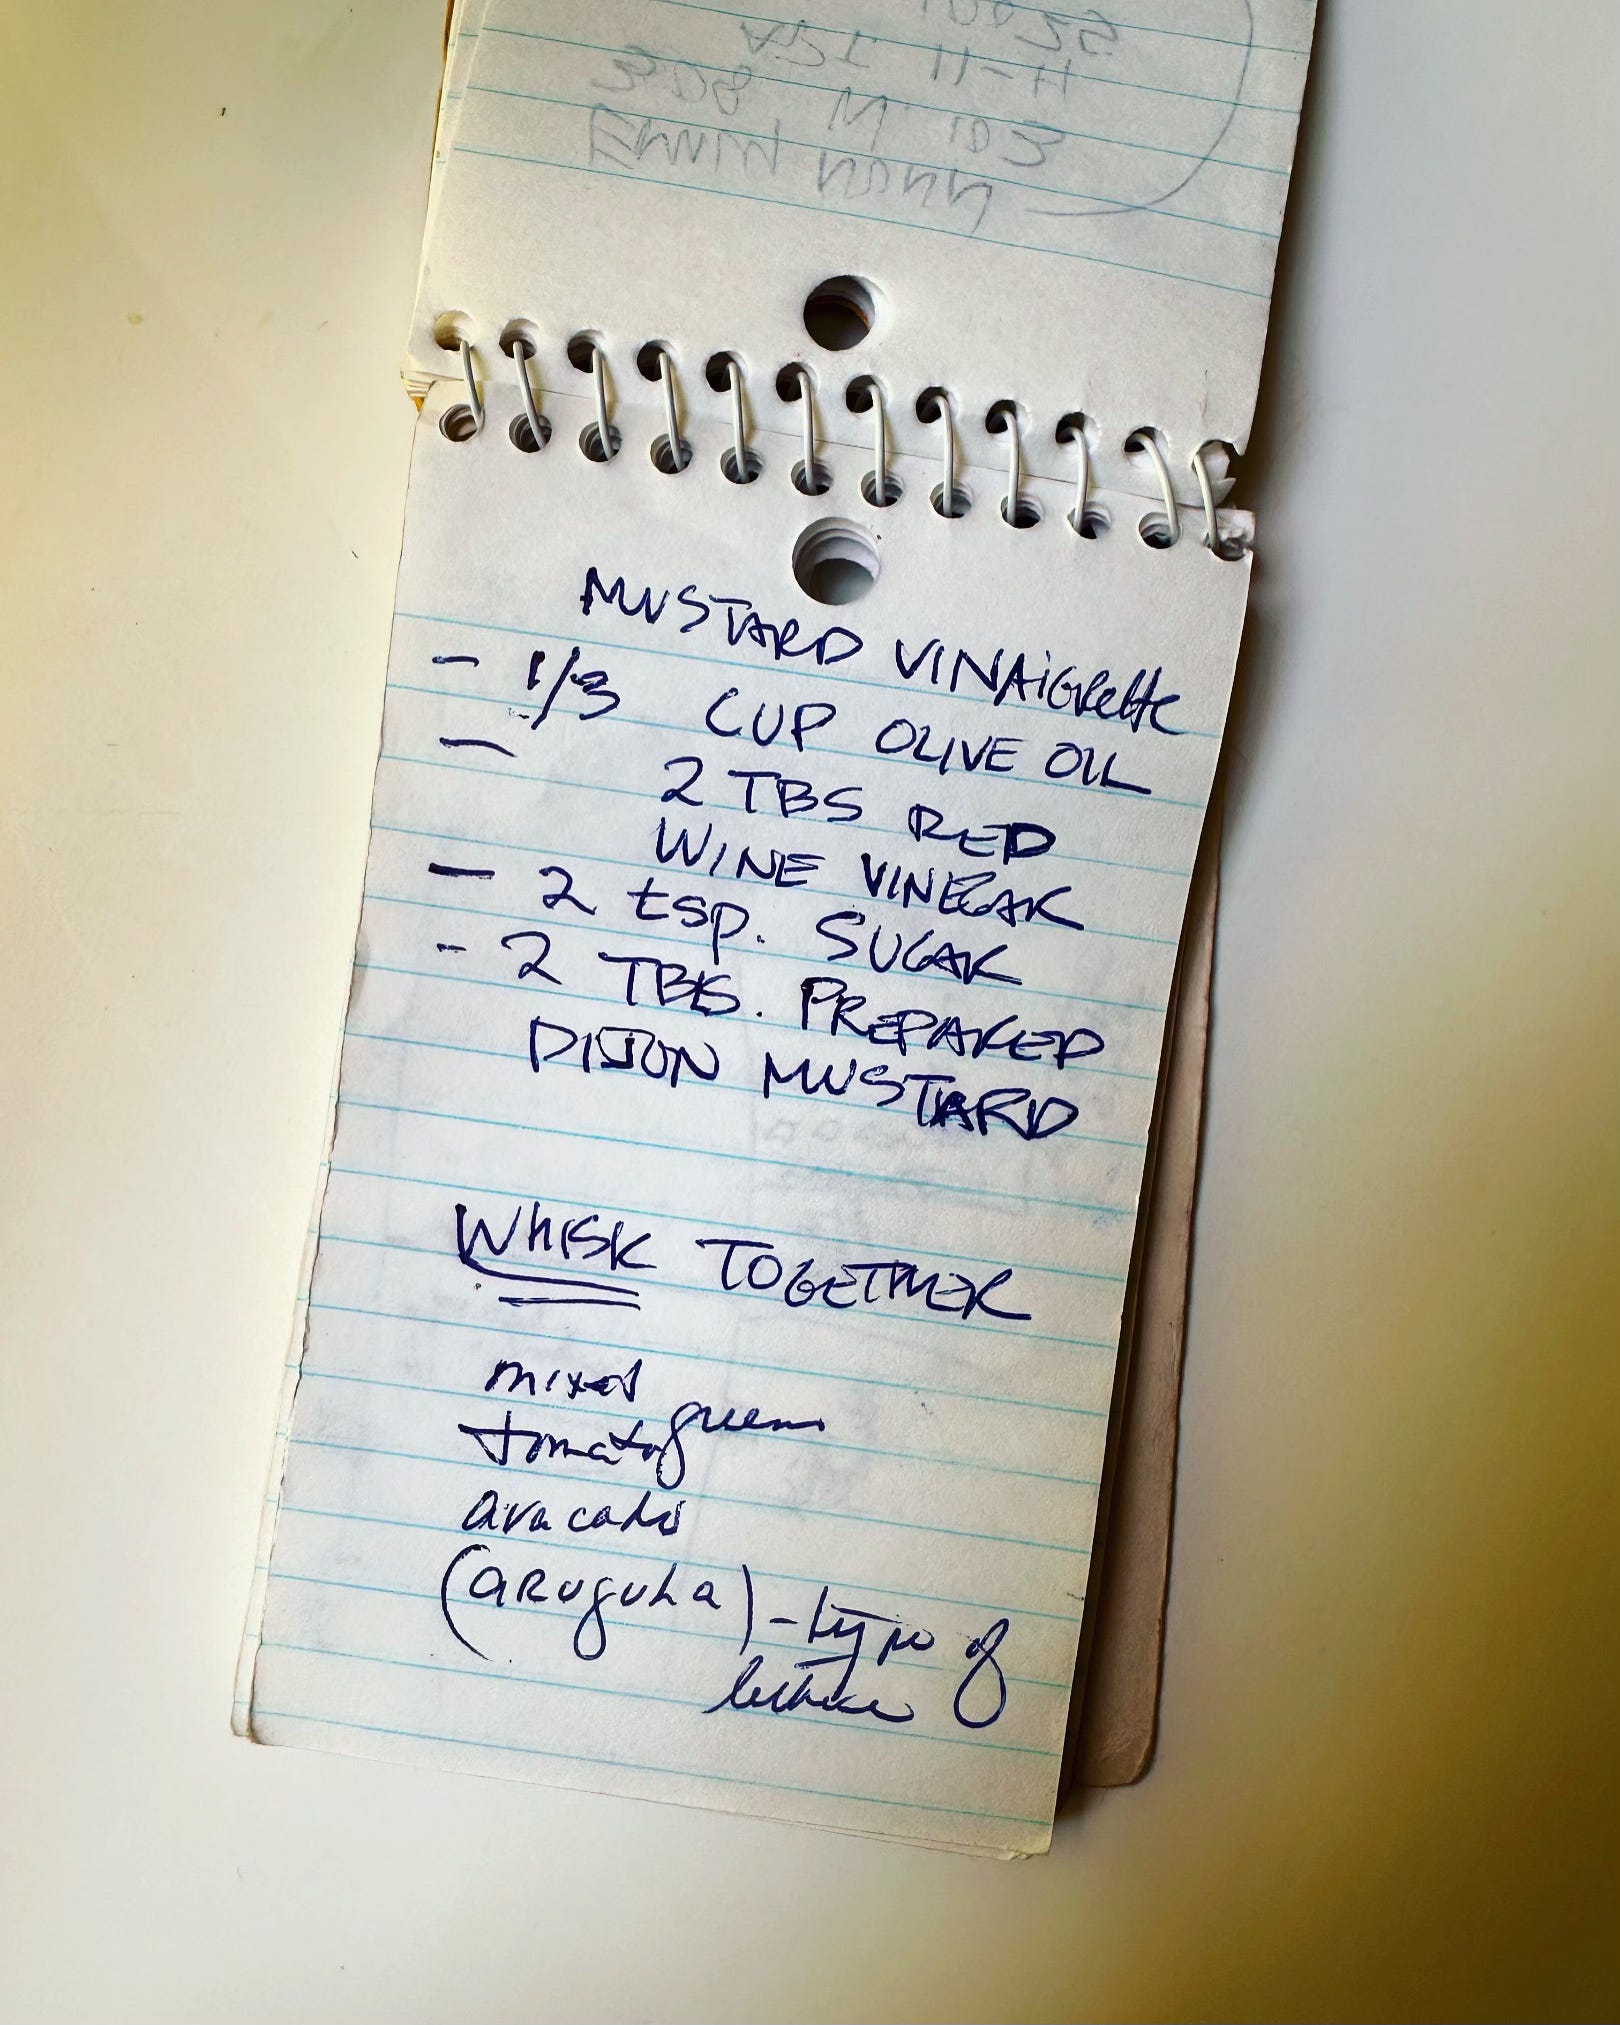 MUSTARD VINAiGRette
- 1/3 CUP OLIVE OIL
- 2 TBS RED
WINE VINEGAR
- 2 tsp. SUGAR
- 2 TBS. PREPARED
DIJON MUSTARD
WHISK TOGETHER
mixed
greens
tomato
avacado
(aRuguLa) - type of
lettuce